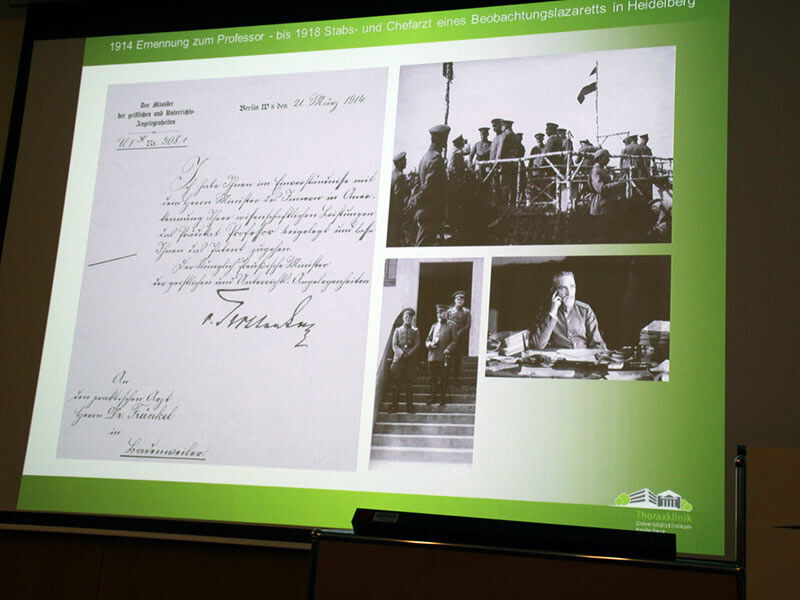 1914 Ernennung zum Professor - bis 1918 Stabs- und Chefarzt eines Beobachtungslazaretts in Heidelberg
Der Minister
der geistlichen und Unterrichts-
Angelegenheiten
Berlin W 8 den 21. März 1914
Nr. 9081
Ich habe Ihnen im Einverständnisse mit
dem Herrn Minister des Innern in Aner-
kennung Ihrer wissenschaftlichen Leistungen
das Prädikat Professor beigelegt und lasse
Ihnen das Patent zugehen.
Der Königlich Preußische Minister
der geistlichen und Unterrichts-Angelegenheiten
An
den praktischen Arzt
Herrn Dr. Fränkel
in
Badenweiler
Thoraxklinik
Universitätsklinikum
Heidelberg